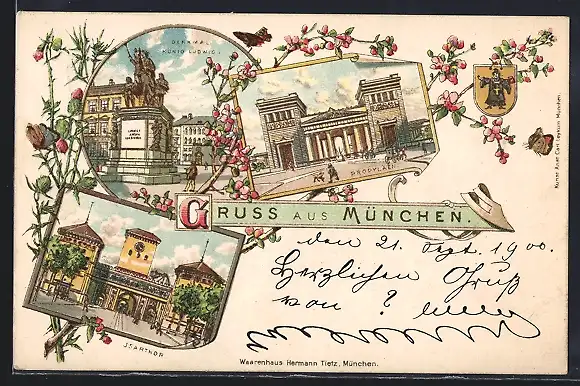 DENKMAL
KÖNIG LUDWIG I.
PROPYLÄEN
GRUSS AUS MÜNCHEN.
den 21. Sept. 1900.
Herzlichen Gruß
von ?
ISARTHOR
Waarenhaus Hermann Tietz, München.
Kunst Anst. Carl München.